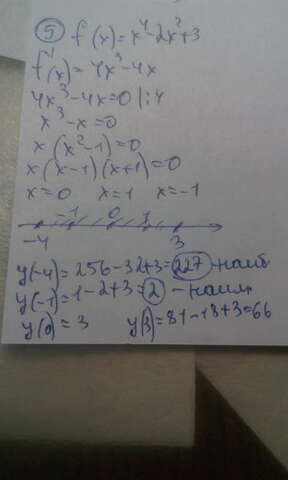 ⑤ f(x)=x⁴-2x²+3
f'(x)=4x³-4x
4x³-4x=0 |:4
x³-x=0
x(x²-1)=0
x(x-1)(x+1)=0
x=0 x=1 x=-1
-1 0 1
-4 3
y(-4)=256-32+3=227-наиб
y(-1)=1-2+3=2 - наим
y(0)=3 y(3)=81-18+3=66